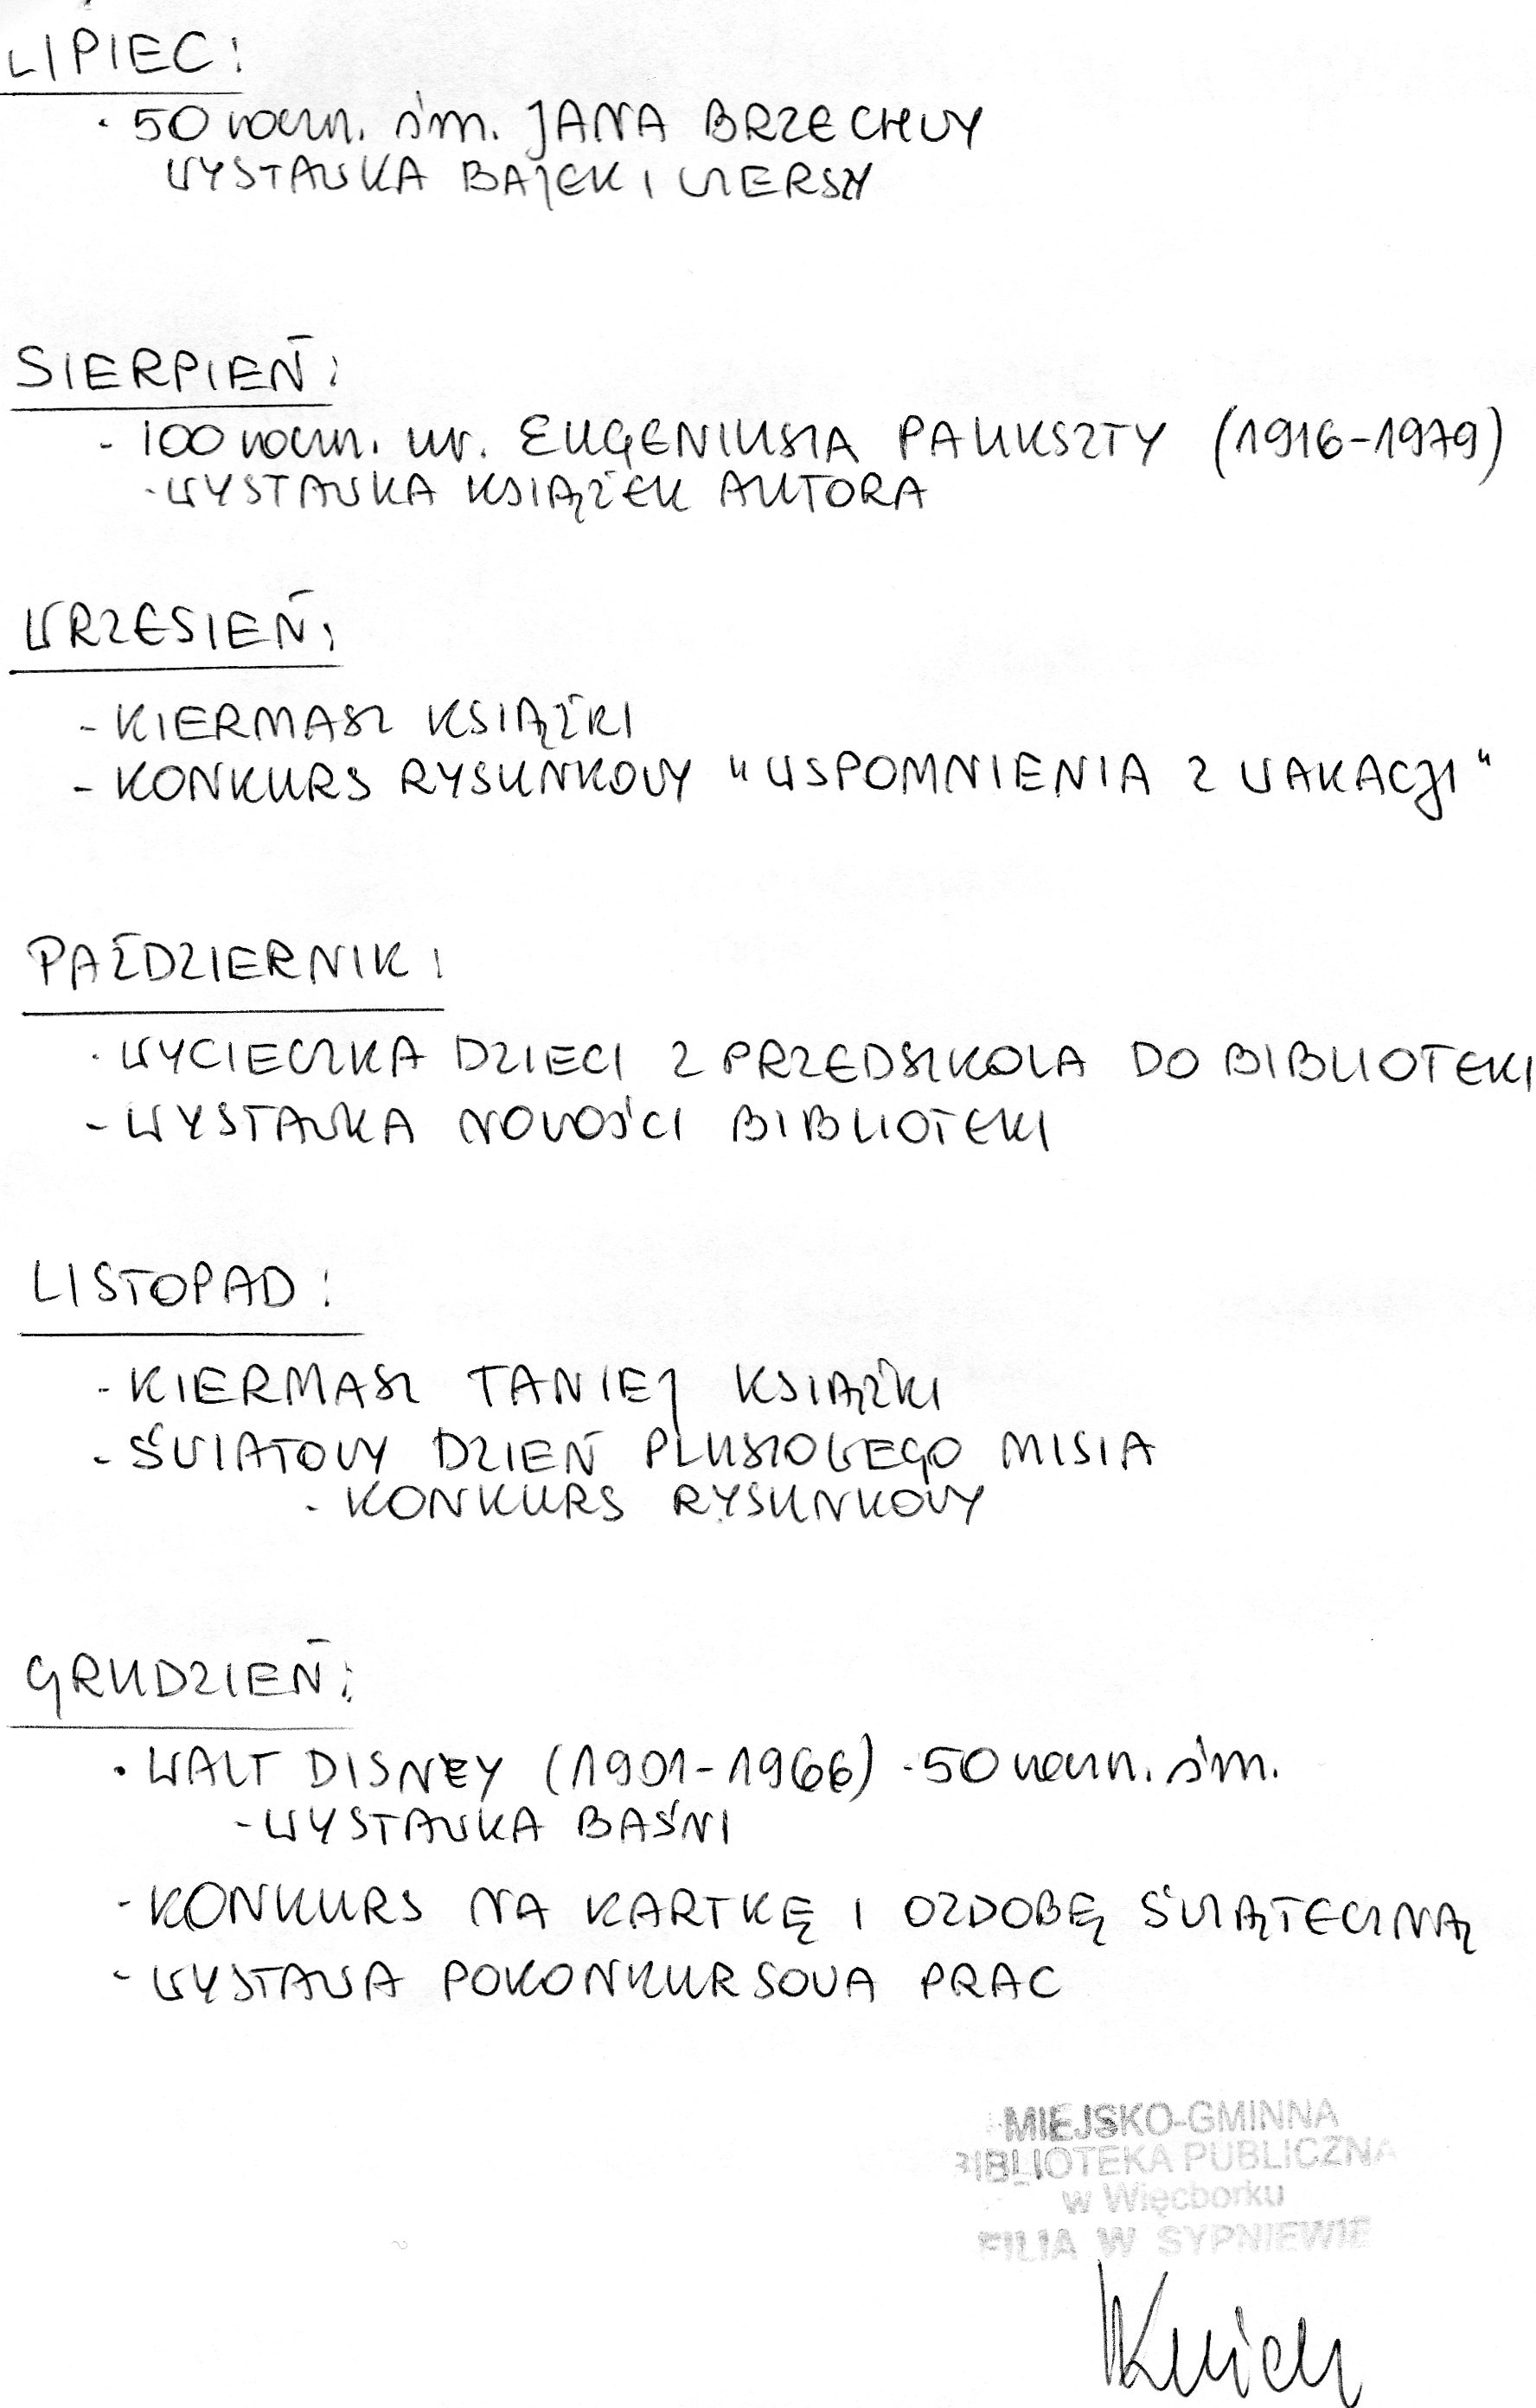 LIPIEC:
· 50 roczn. śm. JANA BRZECHWY
WYSTAWKA BAJEK I WIERSZY
SIERPIEŃ:
- 100 roczn. ur. EUGENIUSZA PAUKSZTY (1916-1979)
- WYSTAWKA KSIĄŻEK AUTORA
WRZESIEŃ:
- KIERMASZ KSIĄŻKI
- KONKURS RYSUNKOWY "WSPOMNIENIA Z WAKACJI"
PAŹDZIERNIK:
· WYCIECZKA DZIECI Z PRZEDSZKOLA DO BIBLIOTEKI
- WYSTAWKA NOWOŚCI BIBLIOTEKI
LISTOPAD:
- KIERMASZ TANIEJ KSIĄŻKI
- ŚWIATOWY DZIEŃ PLUSZOWEGO MISIA
- KONKURS RYSUNKOWY
GRUDZIEŃ:
· WALT DISNEY (1901-1966) - 50 roczn. śm.
- WYSTAWKA BAŚNI
- KONKURS NA KARTKĘ I OZDOBĘ ŚWIĄTECZNĄ
- WYSTAWA POKONKURSOWA PRAC
MIEJSKO-GMINNA
BIBLIOTEKA PUBLICZNA
w Więcborku
FILIA W SYPNIEWIE